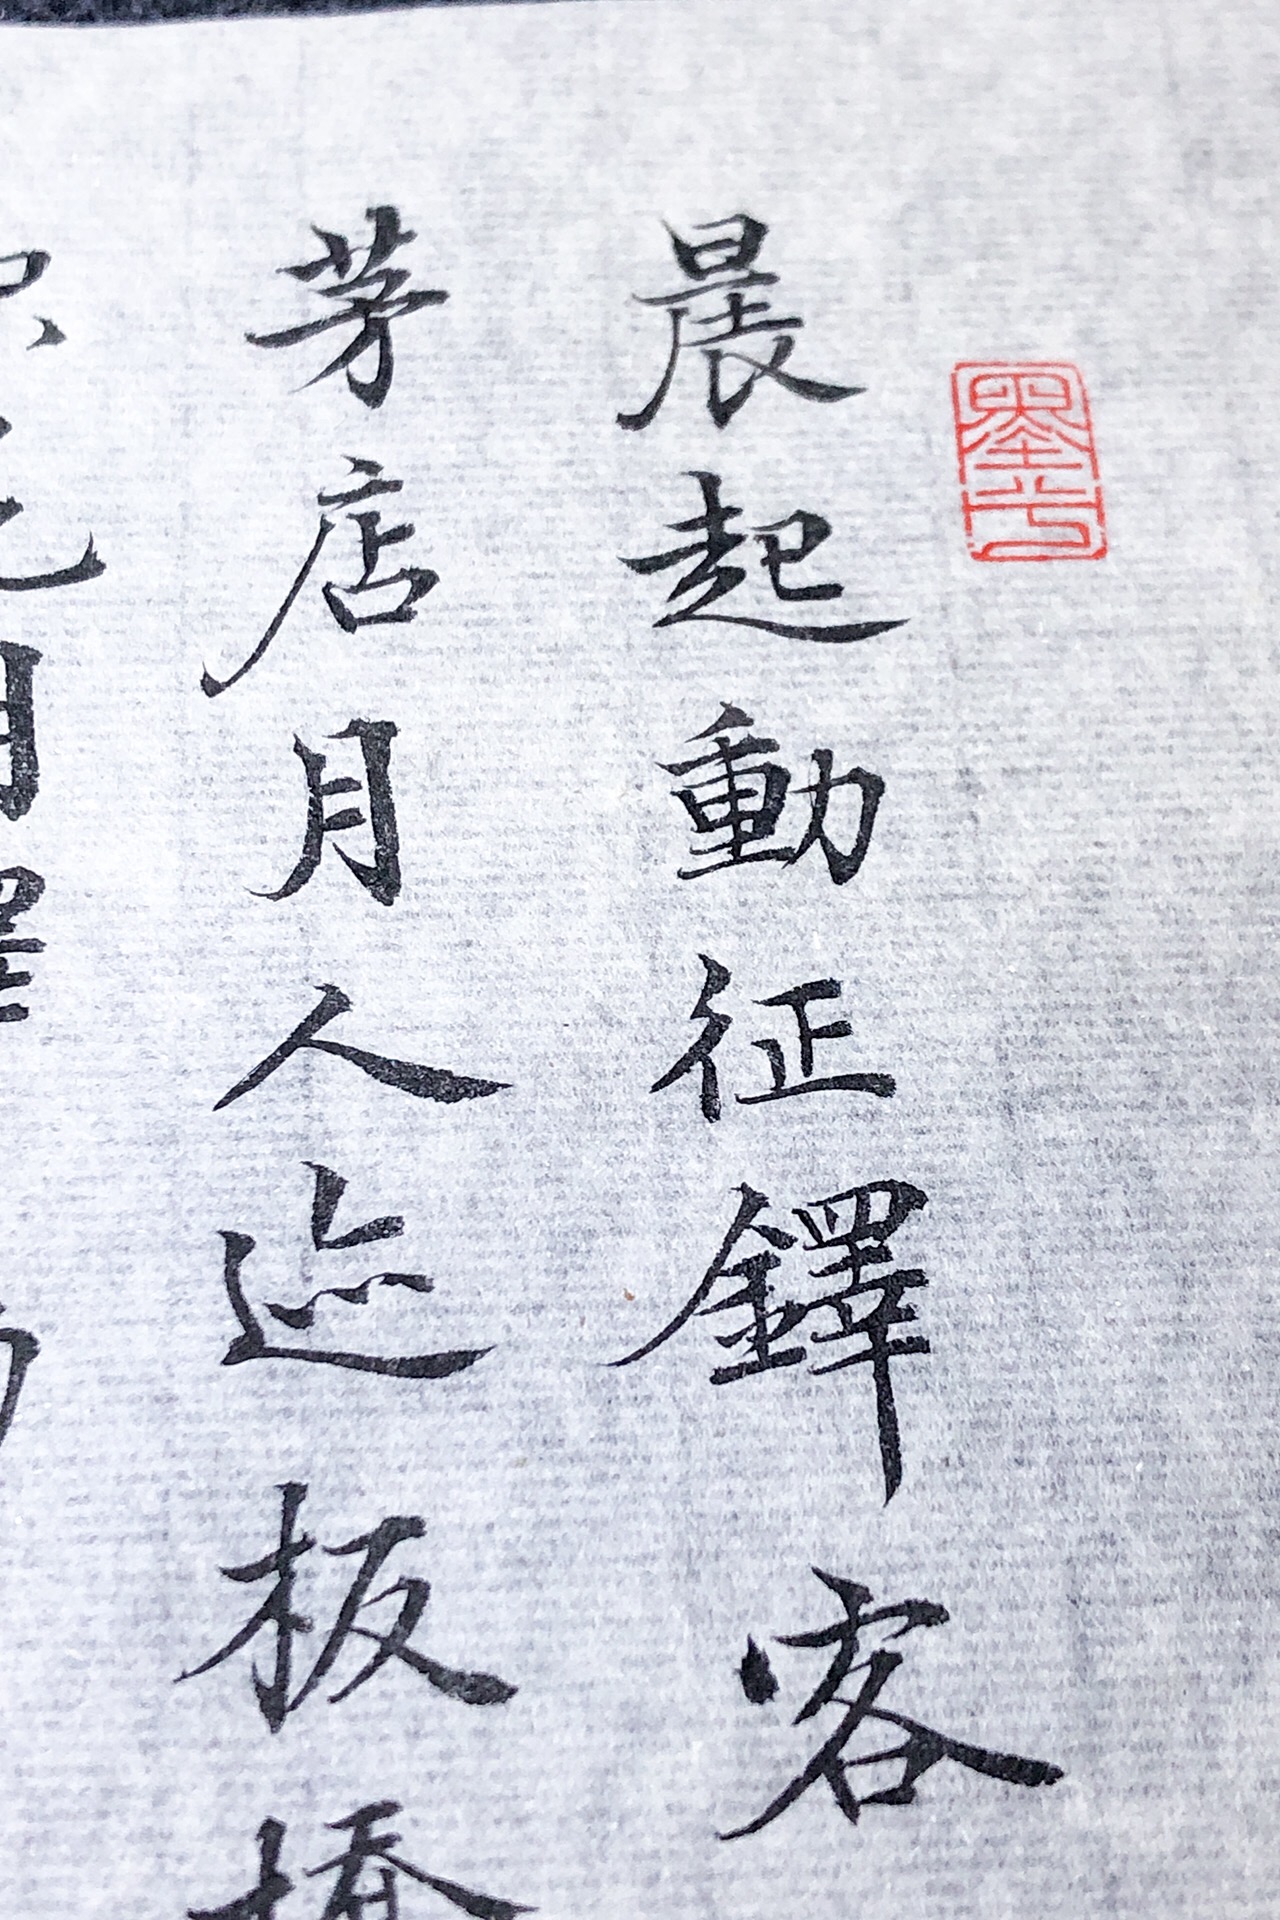 晨起動征鐸客
茅店月人迹板橋